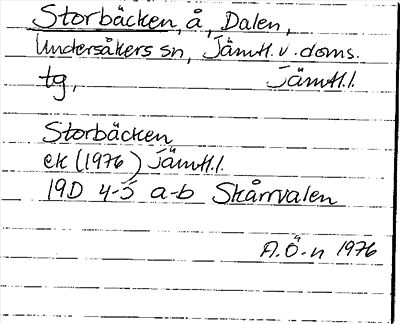 Storbäcken, å, Dalen,
Undersåkers sn, Jämtl. v. doms.
tg, Jämtl. l.
Storbäcken
ek (1976) Jämtl. l.
19D 4-5 a-b Skårrvalen
A.Ö-n 1976